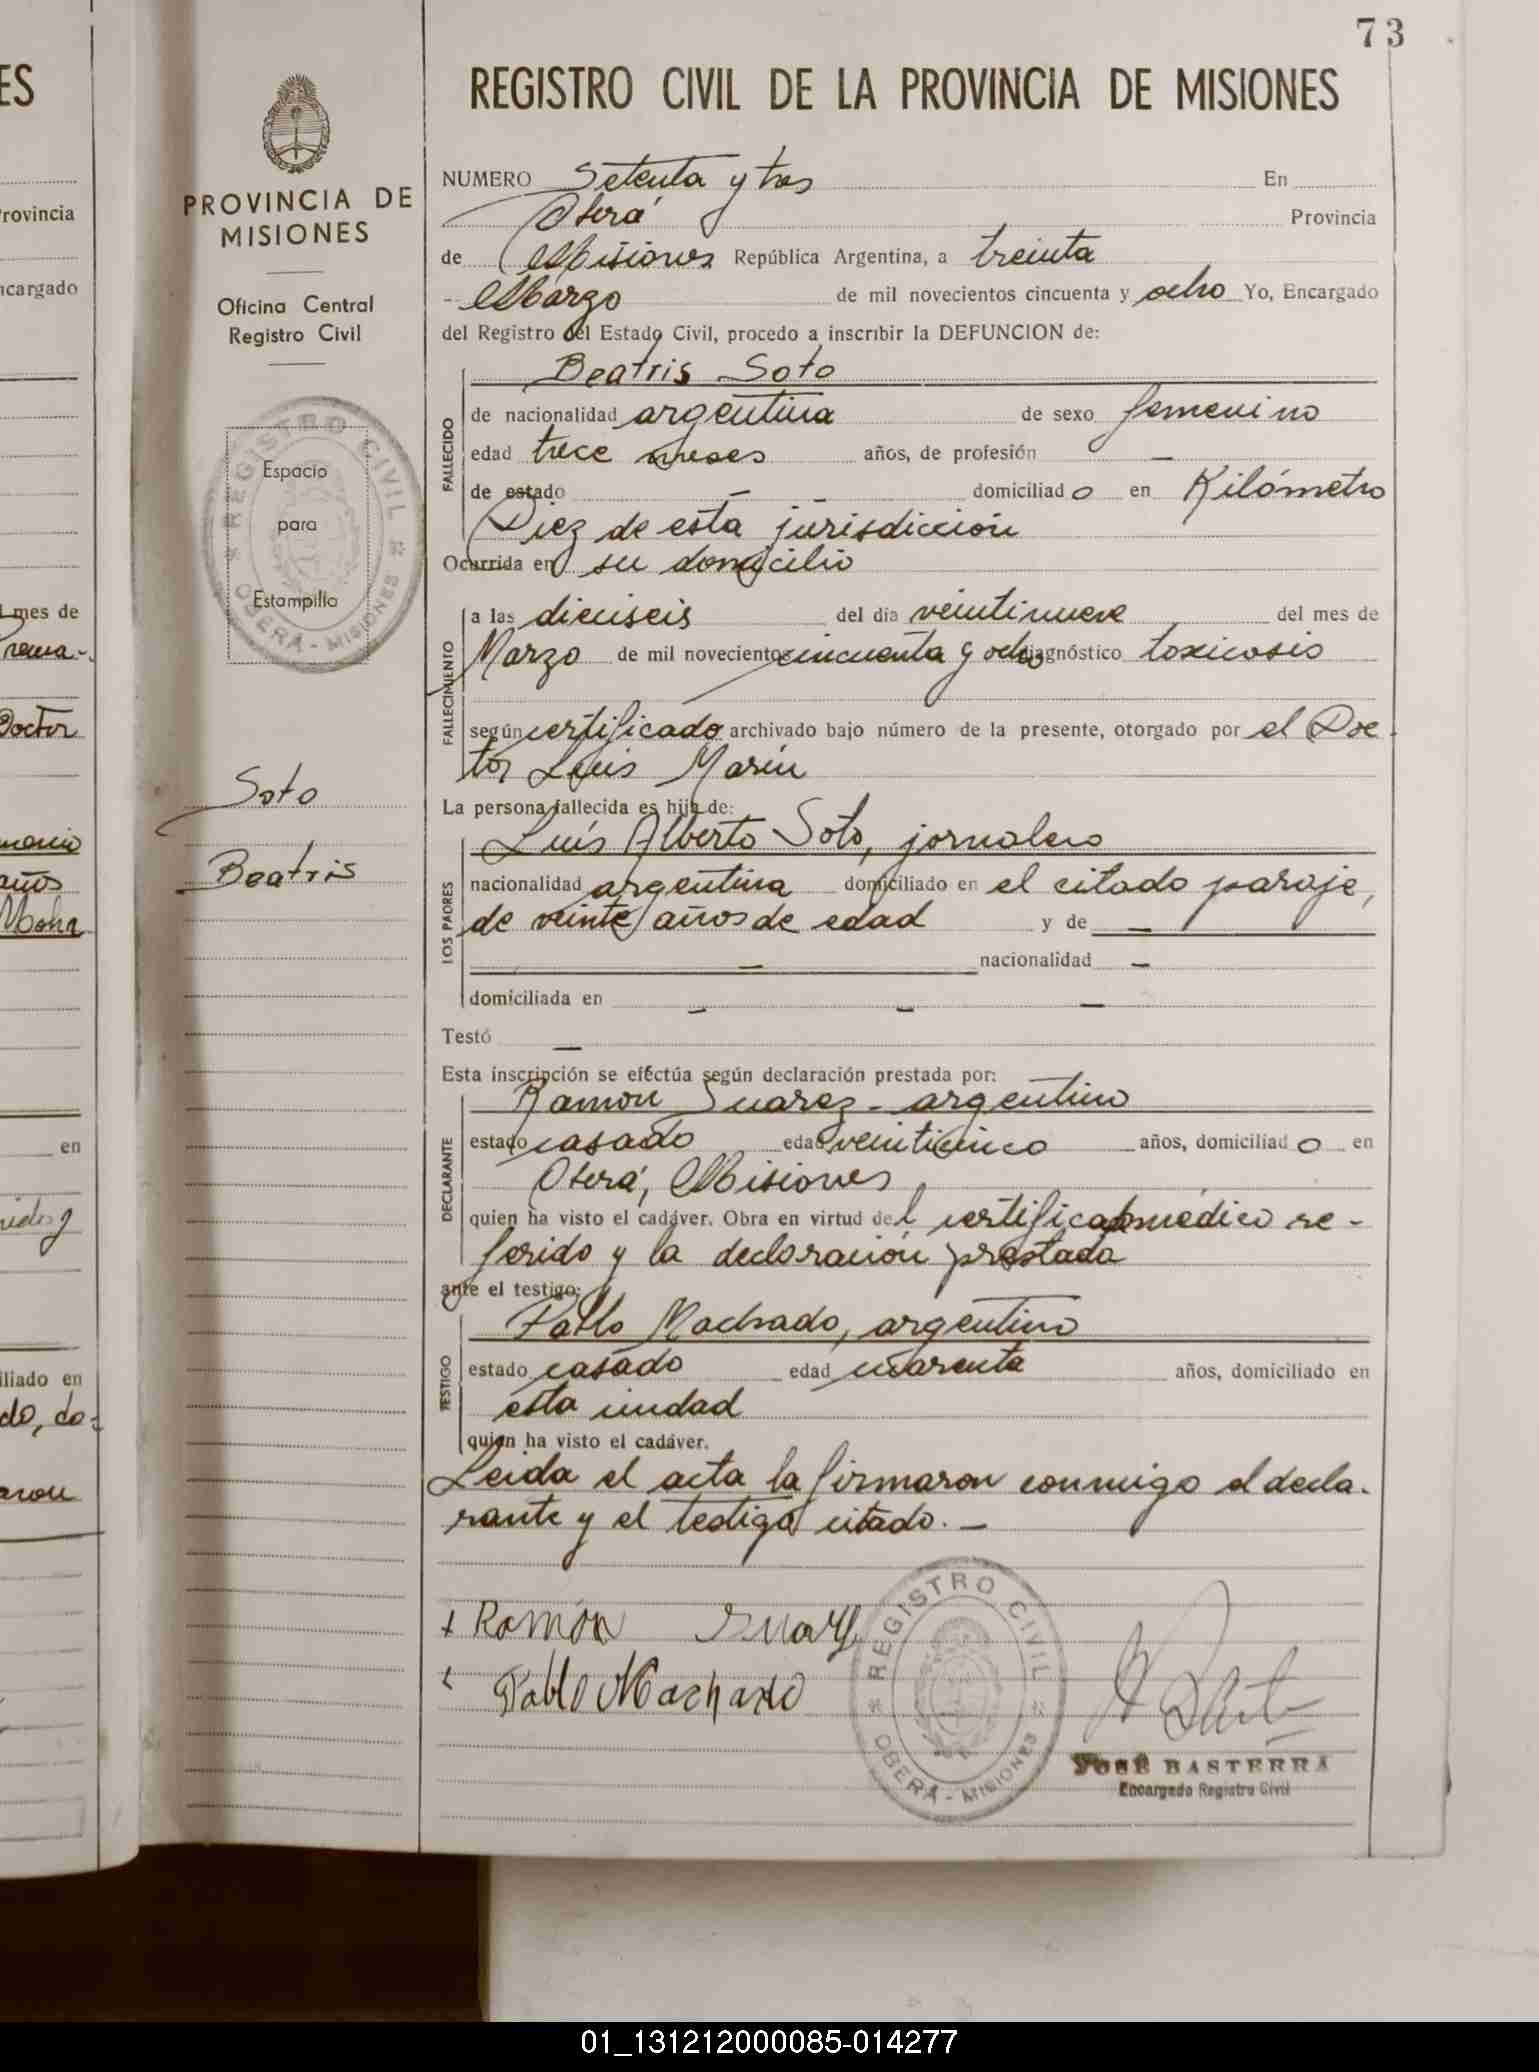 73
REGISTRO CIVIL DE LA PROVINCIA DE MISIONES
PROVINCIA DE
MISIONES
Oficina Central
Registro Civil
REGISTRO CIVIL
Espacio
para
Estampilla
OBERÁ - MISIONES
Soto
Beatris
NUMERO Setenta y tres En
Oberá Provincia
de Misiones República Argentina, a treinta
Marzo de mil novecientos cincuenta y ocho Yo, Encargado
del Registro del Estado Civil, procedo a inscribir la DEFUNCION de:
FALLECIDO
Beatris Soto
de nacionalidad argentina de sexo femenino
edad trece meses años, de profesión —
de estado — — domiciliado en Kilómetro
Diez de esta jurisdicción
Ocurrida en su domicilio
FALLECIMIENTO
a las dieciseis del día veintinueve del mes de
Marzo de mil novecientos cincuenta y ocho diagnóstico toxicosis
según certificado archivado bajo número de la presente, otorgado por el Doc-
tor Luis Marín
La persona fallecida es hija de:
LOS PADRES
Luis Alberto Soto, jornalero
nacionalidad argentina domiciliado en el citado paraje,
de veinte años de edad y de —
— nacionalidad —
domiciliada en — — —
Testó —
Esta inscripción se efectúa según declaración prestada por:
DECLARANTE
Ramon Suarez - argentino
estado casado edad veinticinco años, domiciliado en
Oberá, Misiones
quien ha visto el cadáver. Obra en virtud del certificado médico re-
ferido y la declaración prestada
ante el testigo:
TESTIGO
Pablo Machado, argentino
estado casado edad cuarenta años, domiciliado en
esta ciudad
quien ha visto el cadáver.
Leida el acta la firmaron conmigo el decla-
rante y el testigo citado. —
Ramón Suarez
Pablo Machado
REGISTRO CIVIL
OBERÁ - MISIONES
JOSÉ BASTERRA
Encargado Registro Civil
ES
Provincia
ncargado
l mes de
Doctor
años
en
iliado en
do, do-
aron
01_131212000085-014277